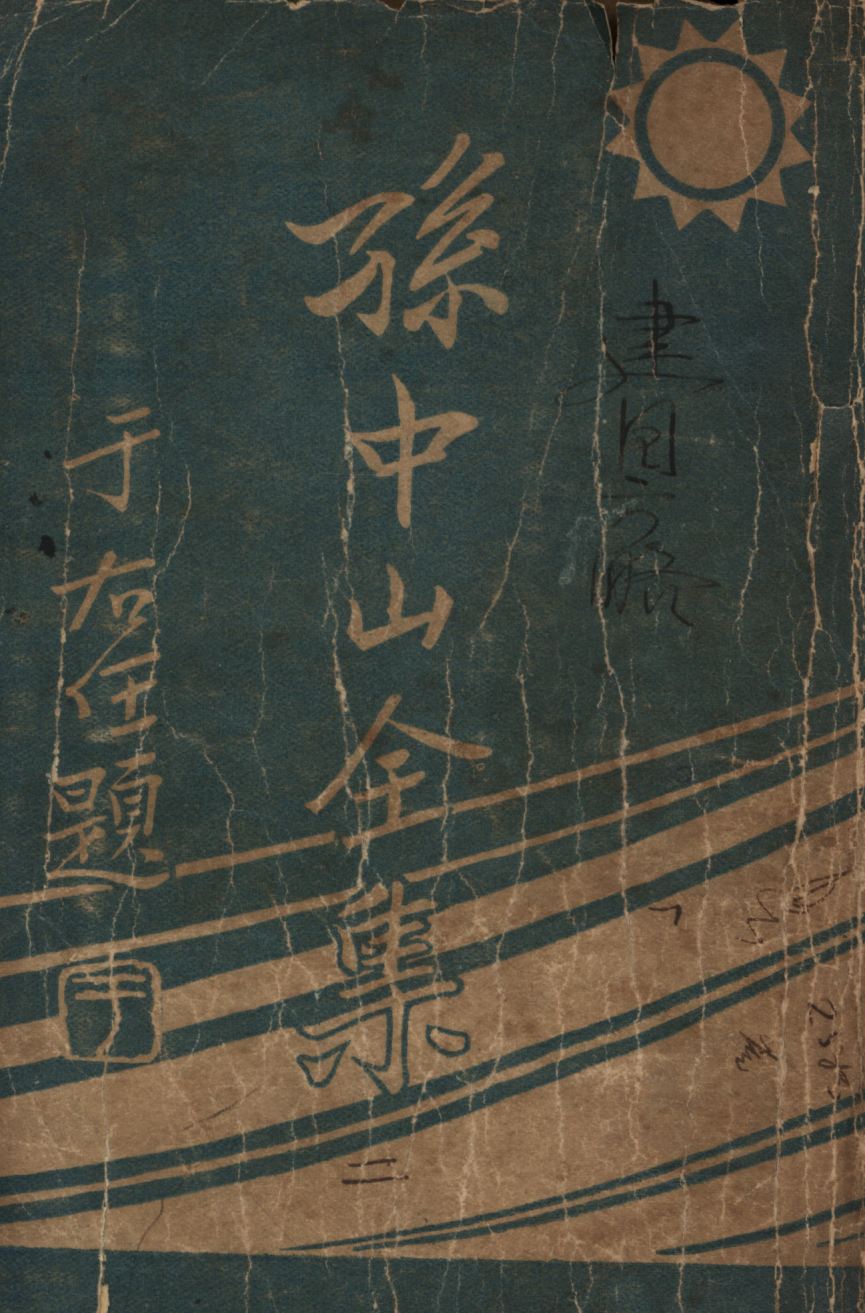 建国方略
孫中山全集
二
于右任題